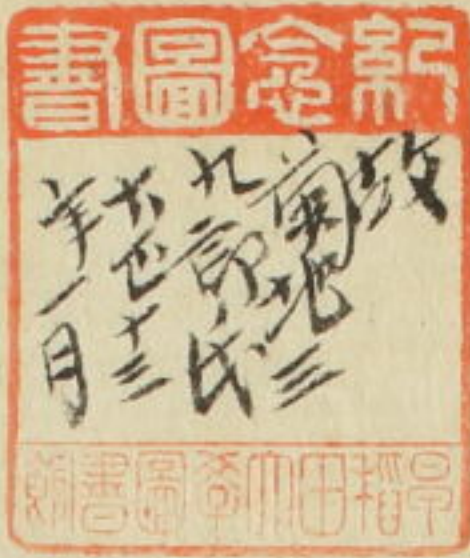 紀念圖書
故
菊地三
九郎氏
大正十三
年一月
早稻田大學圖書館